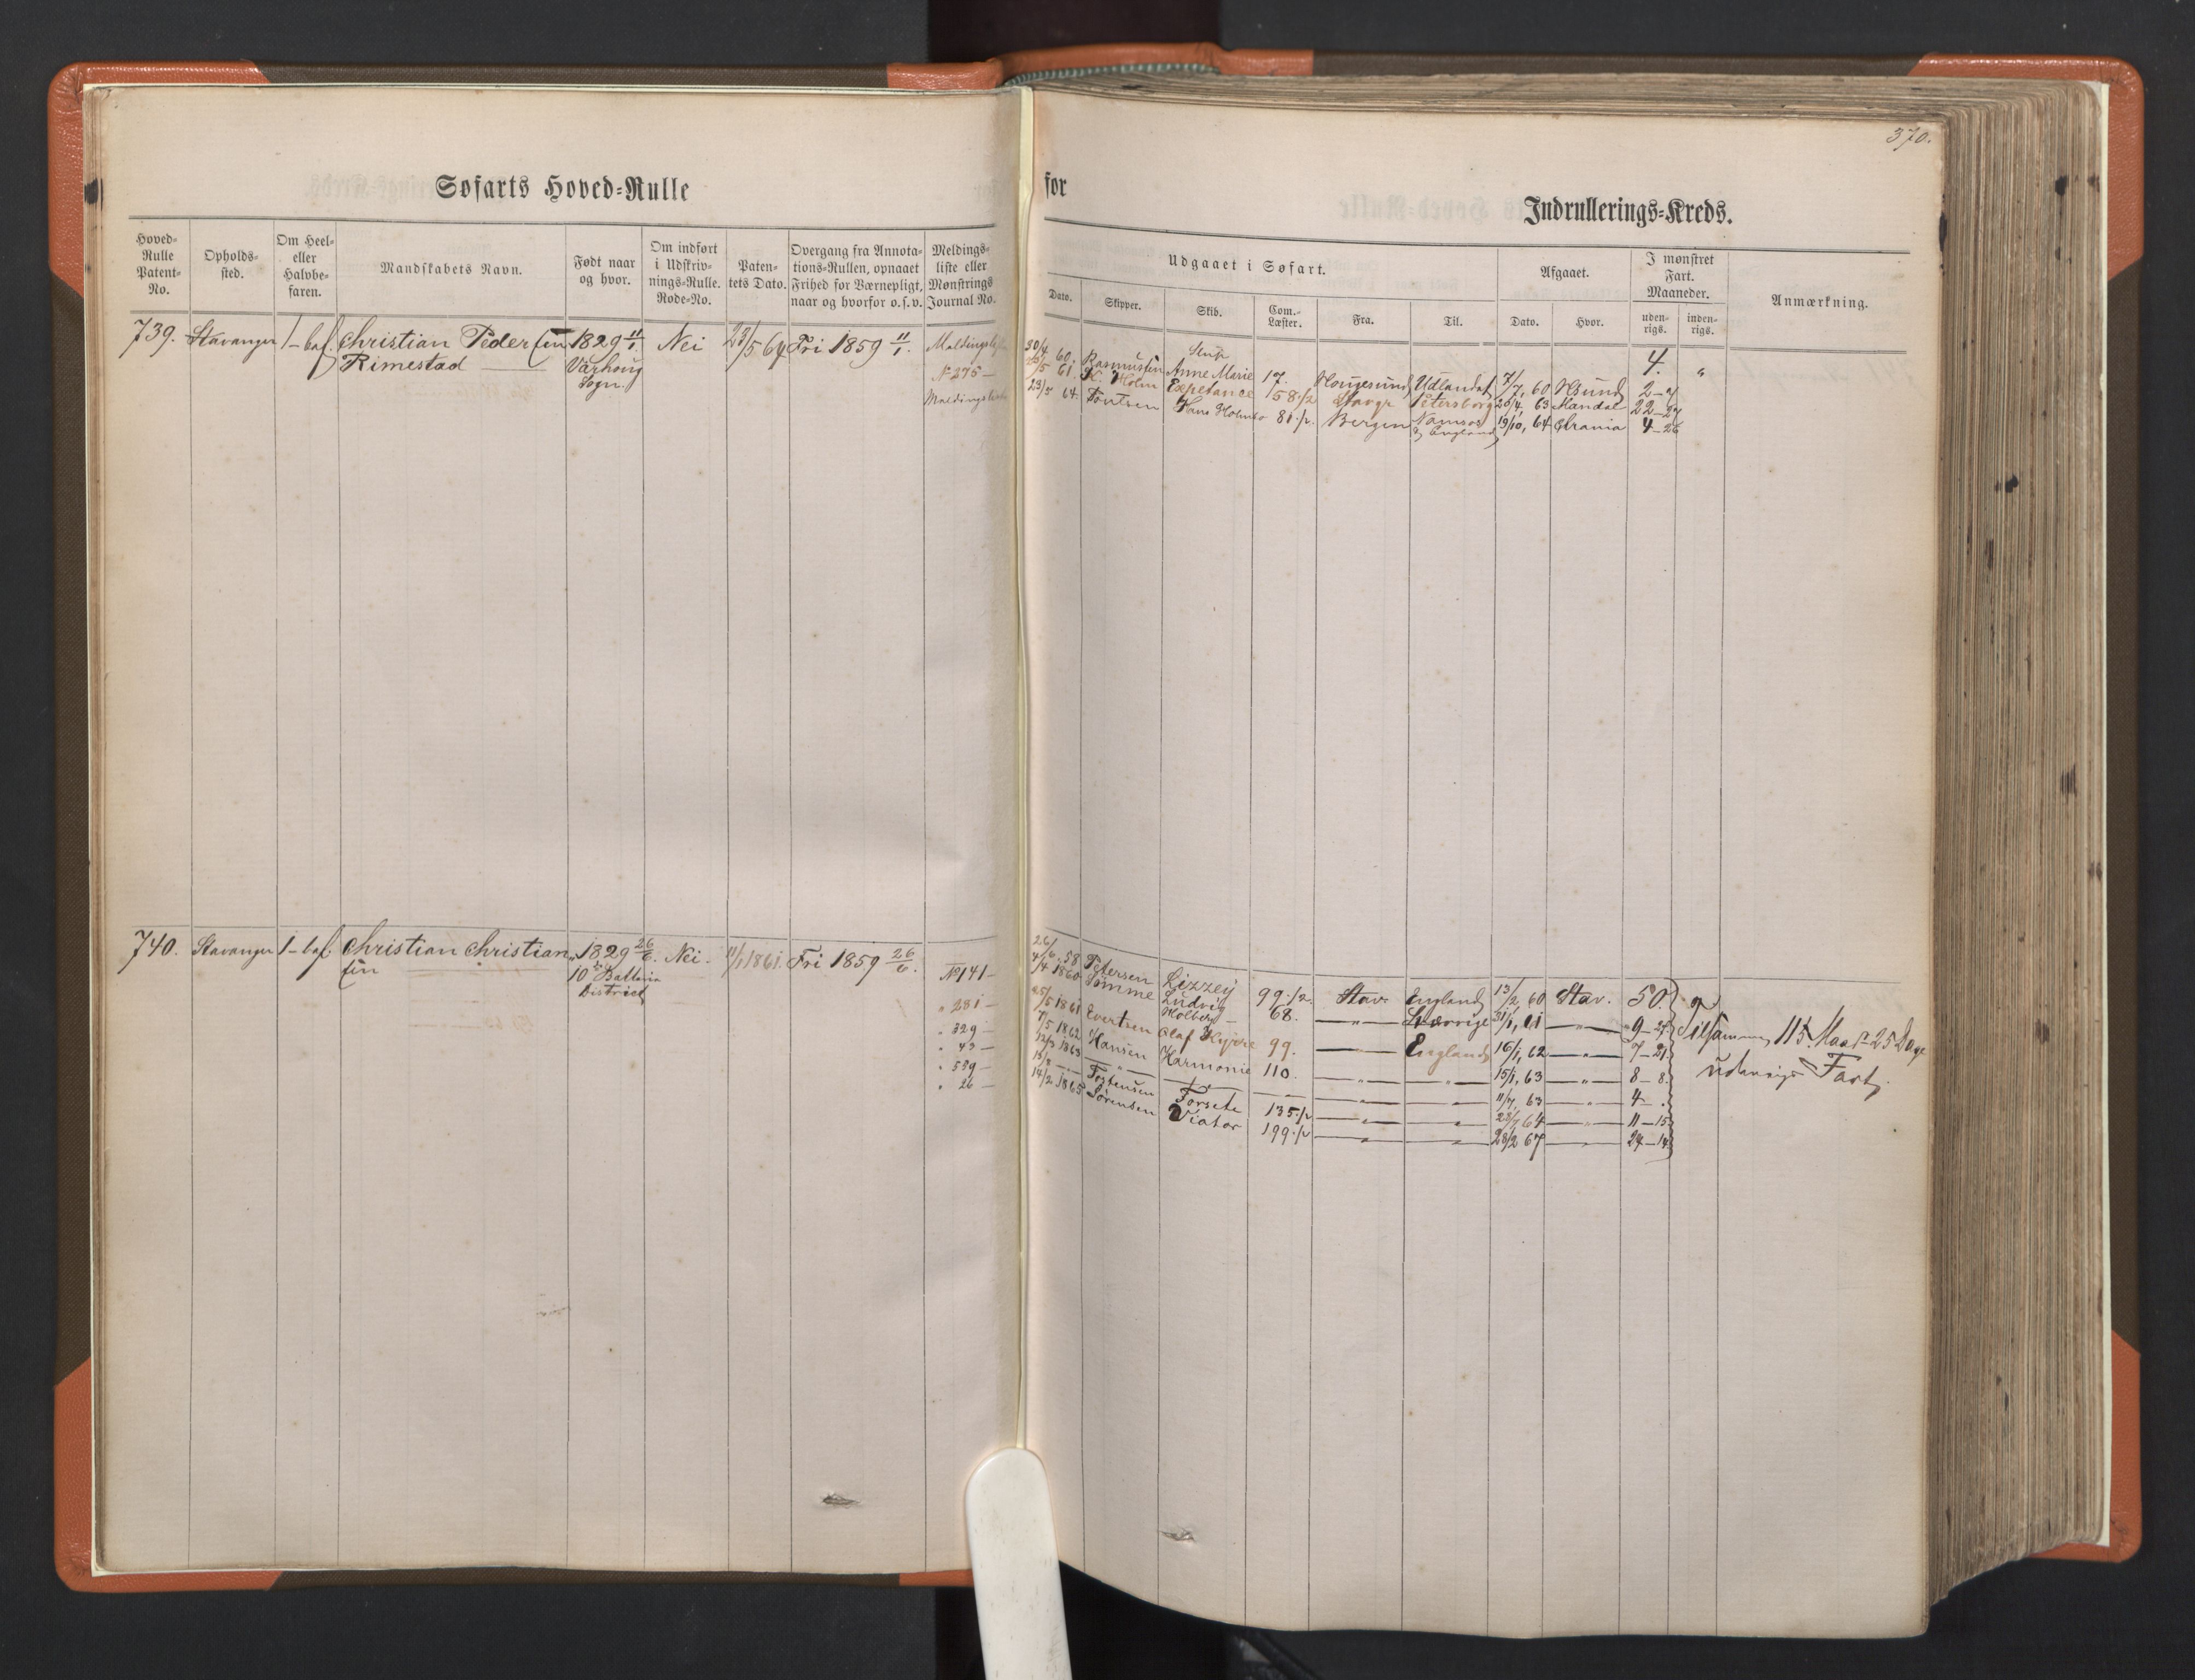 370.
Søfarts Hoved-Rulle
for
Indrullerings-Kreds.
Hoved-Rulle Patent-No.
Opholds-sted.
Om Heel- eller Halvbe-faren.
Mandskabets Navn.
Født naar og hvor.
Om indført i Udskriv-nings-Rulle. Rode-No.
Paten-tets Dato.
Overgang fra Annota-tions-Rullen, opnaaet Frihed for Værnepligt, naar og hvorfor o.s.v.
Meldings-liste eller Mønstrings Journal No.
Udgaaet i Søfart.
Dato.
Skipper.
Skib.
Com.-Læster.
Fra.
Til.
Afgaaet.
Dato.
Hvor.
I mønstret Fart. Maaneder.
uden-rigs.
inden-rigs.
Anmærkning.
739. Stavanger 1-baf. Christian Pedersen 1829 11/1. Nei 23/5 64 Fri 1859 11/1.
Rimestad Varhoug Sogn.
N 275-
30/4 60. Rasmussen Slup Anne Marie 17. Hougesund Udlandet 7/7, 60 Hsund 4. "
/5 61. K. Holm Expetance 58 1/2 Stavgr Petersborg 20/4, 63 Mandal 22-27
23/5 64. Hans Holm 81 1/2. Bergen Namsos & England 19/10, 64 Chrania 4-26
740. Stavanger 1-baf. Christian Christian- 1829 26/6. Nei. 11/1 1861. Fri 1859 26/6.
sen 10de Batteri District
No 141- 26/6. 58 Petersen Lizzey 99 1/2. Stav. England 13/2, 60 Stav. 50.
" 281- 4/4 1860 Sømme Ludvig Holberg 68. -"- Sverrige 31/1, 61 -"- 9-27
" 329- 25/5 1861 Evertsen Olaf Kyrre 99. -"- England 16/1, 62 -"- 7-21.
" 43- 7/5 1862 Hansen Harmonie 110. -"- -"- 15/1, 63 -"- 8-8.
" 559- 12/3 1863 -"- -"- -"- -"- 11/7, 63 -"- 4-.
" 26- Torstensen Forsete 135 1/2 -"- -"- 64 -"- 11-15
14/2 1865 Sørensen Viator 199 1/2 -"- -"- 28/2 67 -"- 24-14
Tilsammen 115 Maar 25 Dage
udenrigs Fart.